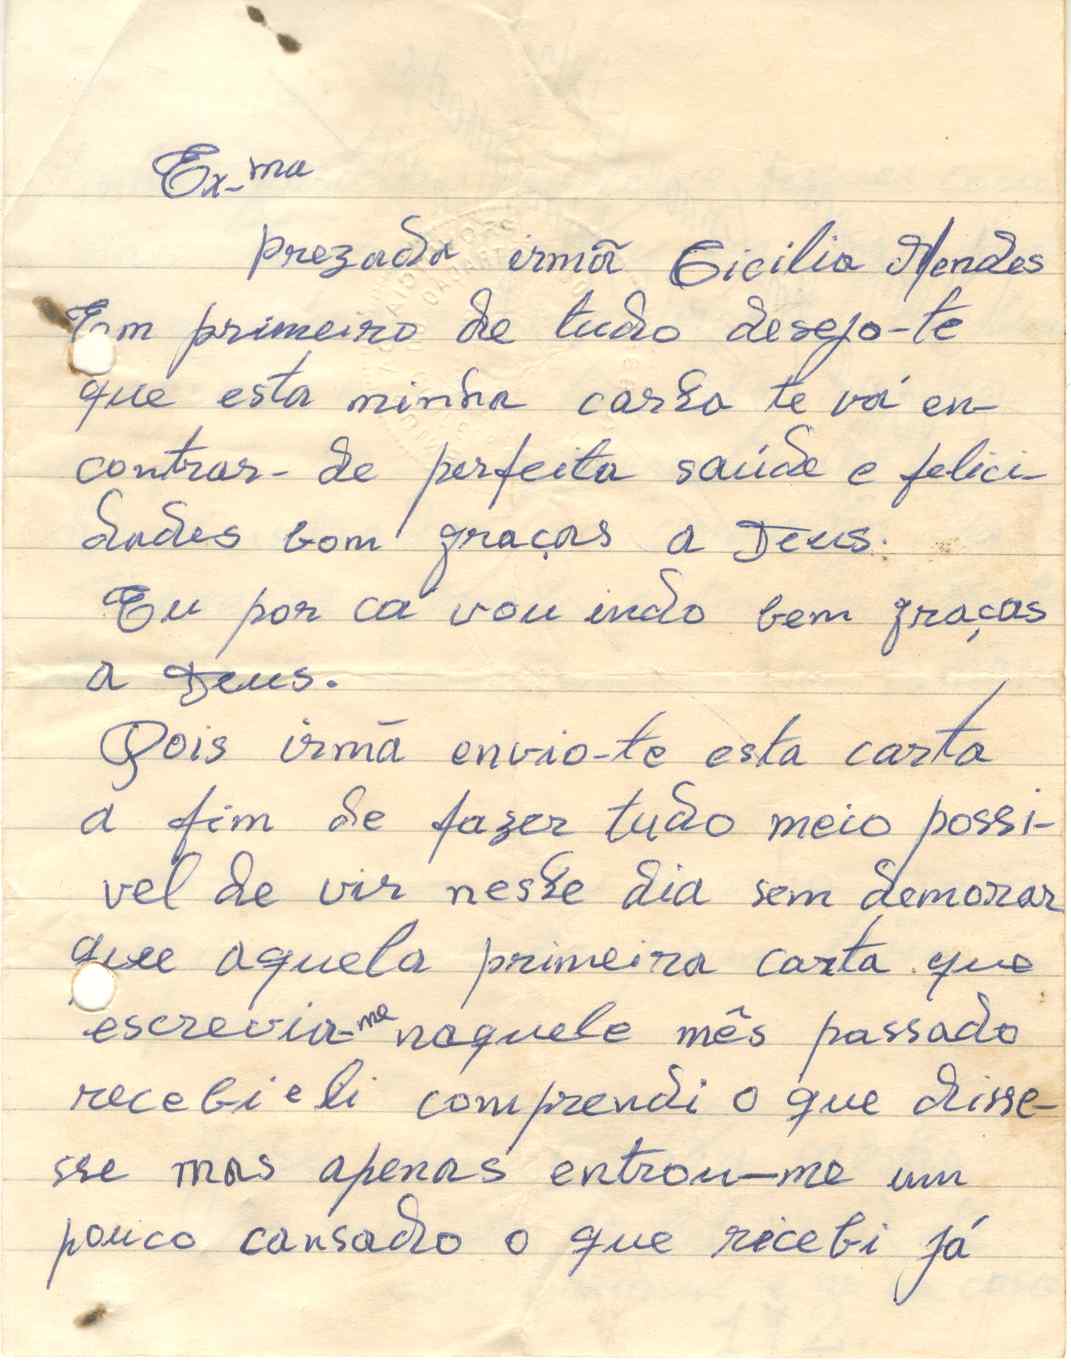 Ex-ma
prezada irmã Cicilia Mendes
Em primeiro de tudo desejo-te
que esta minha carta te vá en-
contrar- de perfeita saúde e felici-
dades bom graças a Deus.
Eu por cá vou indo bem graças
a Deus.
Pois irmã envio-te esta carta
a fim de fazer tudo meio possi-
vel de vir neste dia sem demorar
que aquela primeira carta que
escrevia-me naquele mês passado
recebi e li comprendi o que disse-
sse mas apenas entrou-me um
pouco cansado o que ricebi já